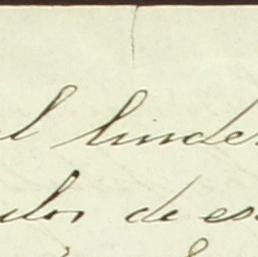 l linder
ulos de es